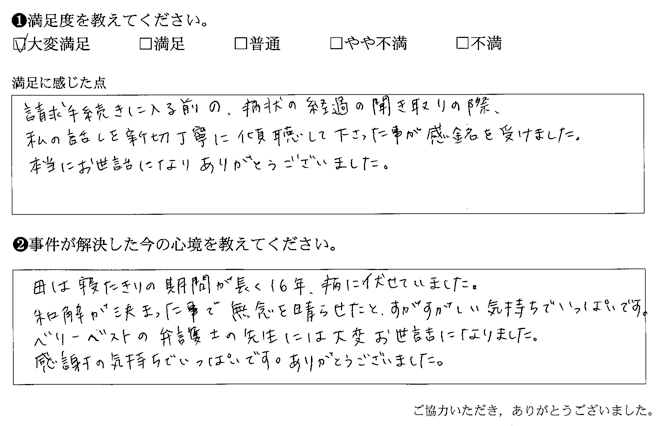 ❶満足度を教えてください。
☑大変満足 □満足 □普通 □やや不満 □不満
満足に感じた点
請求手続きに入る前の、病状の経過の聞き取りの際、
私の話しを親切丁寧に傾聴して下さった事が感銘を受けました。
本当にお世話になりありがとうございました。
❷事件が解決した今の心境を教えてください。
母は寝たきりの期間が長く16年、病に伏せていました。
和解が決まった事で無念を晴らせたと、すがすがしい気持ちでいっぱいです。
ベリーベストの弁護士の先生には大変お世話になりました。
感謝の気持ちでいっぱいです。ありがとうございました。
ご協力いただき，ありがとうございました。